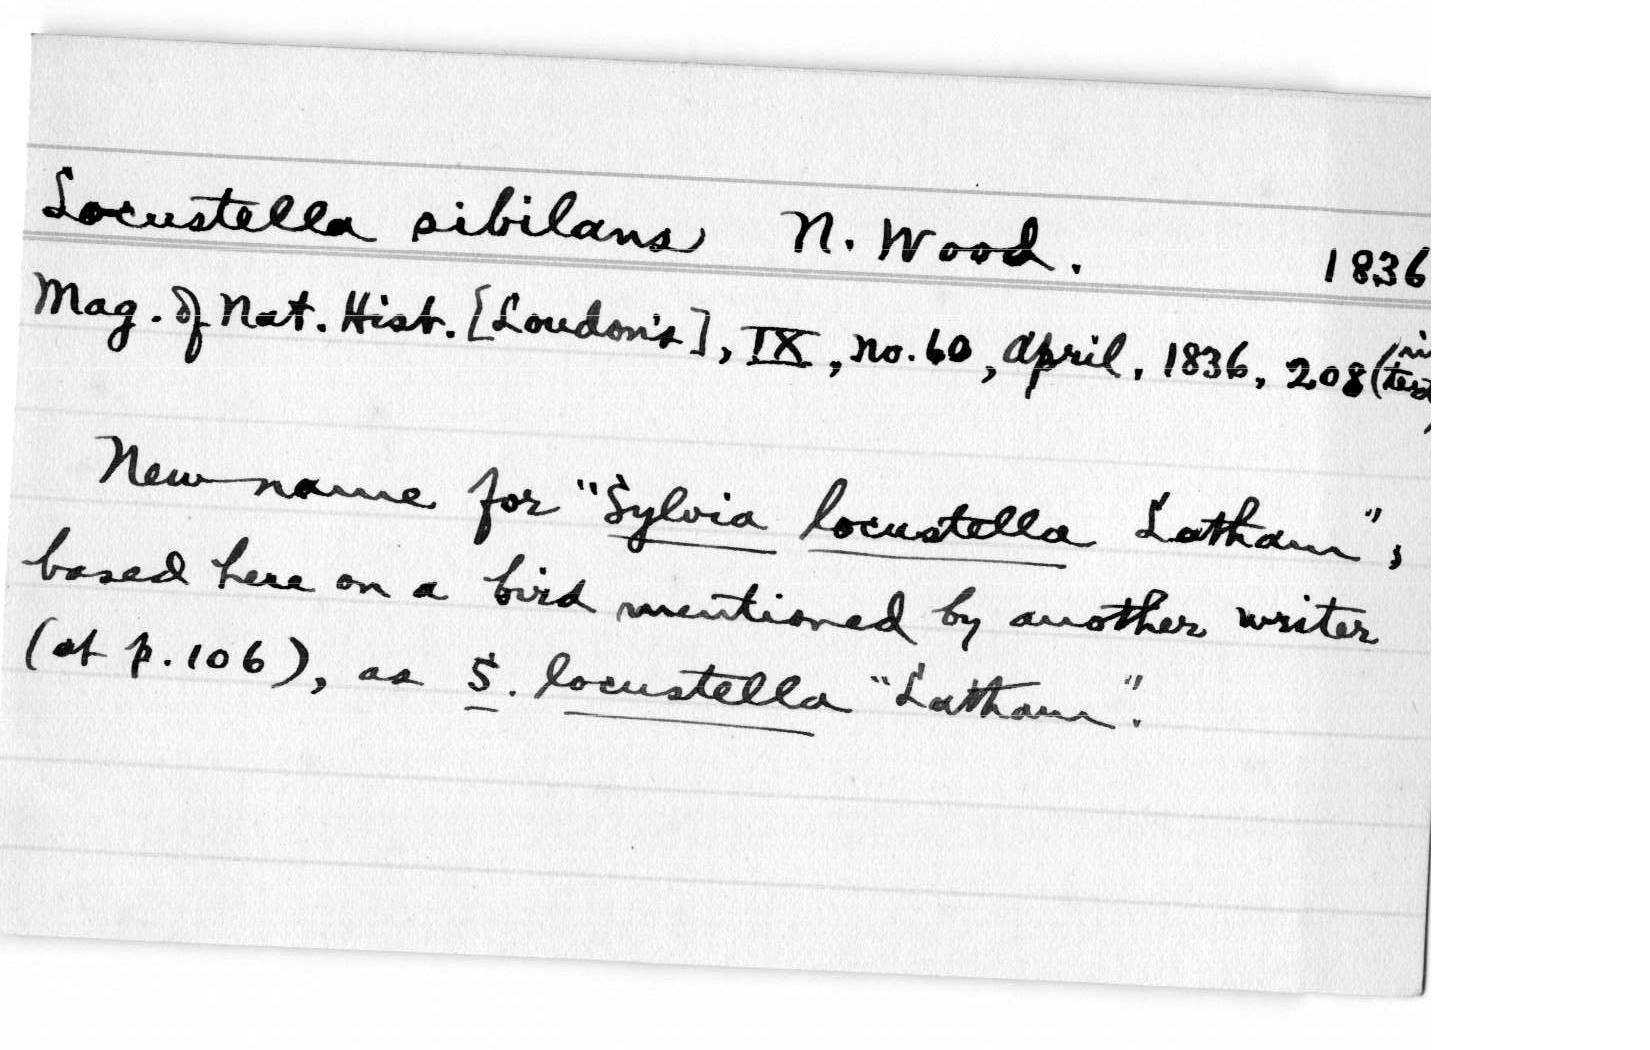 Locustella sibilans N. Wood. 1836
Mag. of Nat. Hist. [Loudon's], IX, no. 60, April, 1836, 208 (in
text
New name for "Sylvia locustella Latham",
based here on a bird mentioned by another writer
(at p. 106), as S. locustella "Latham".